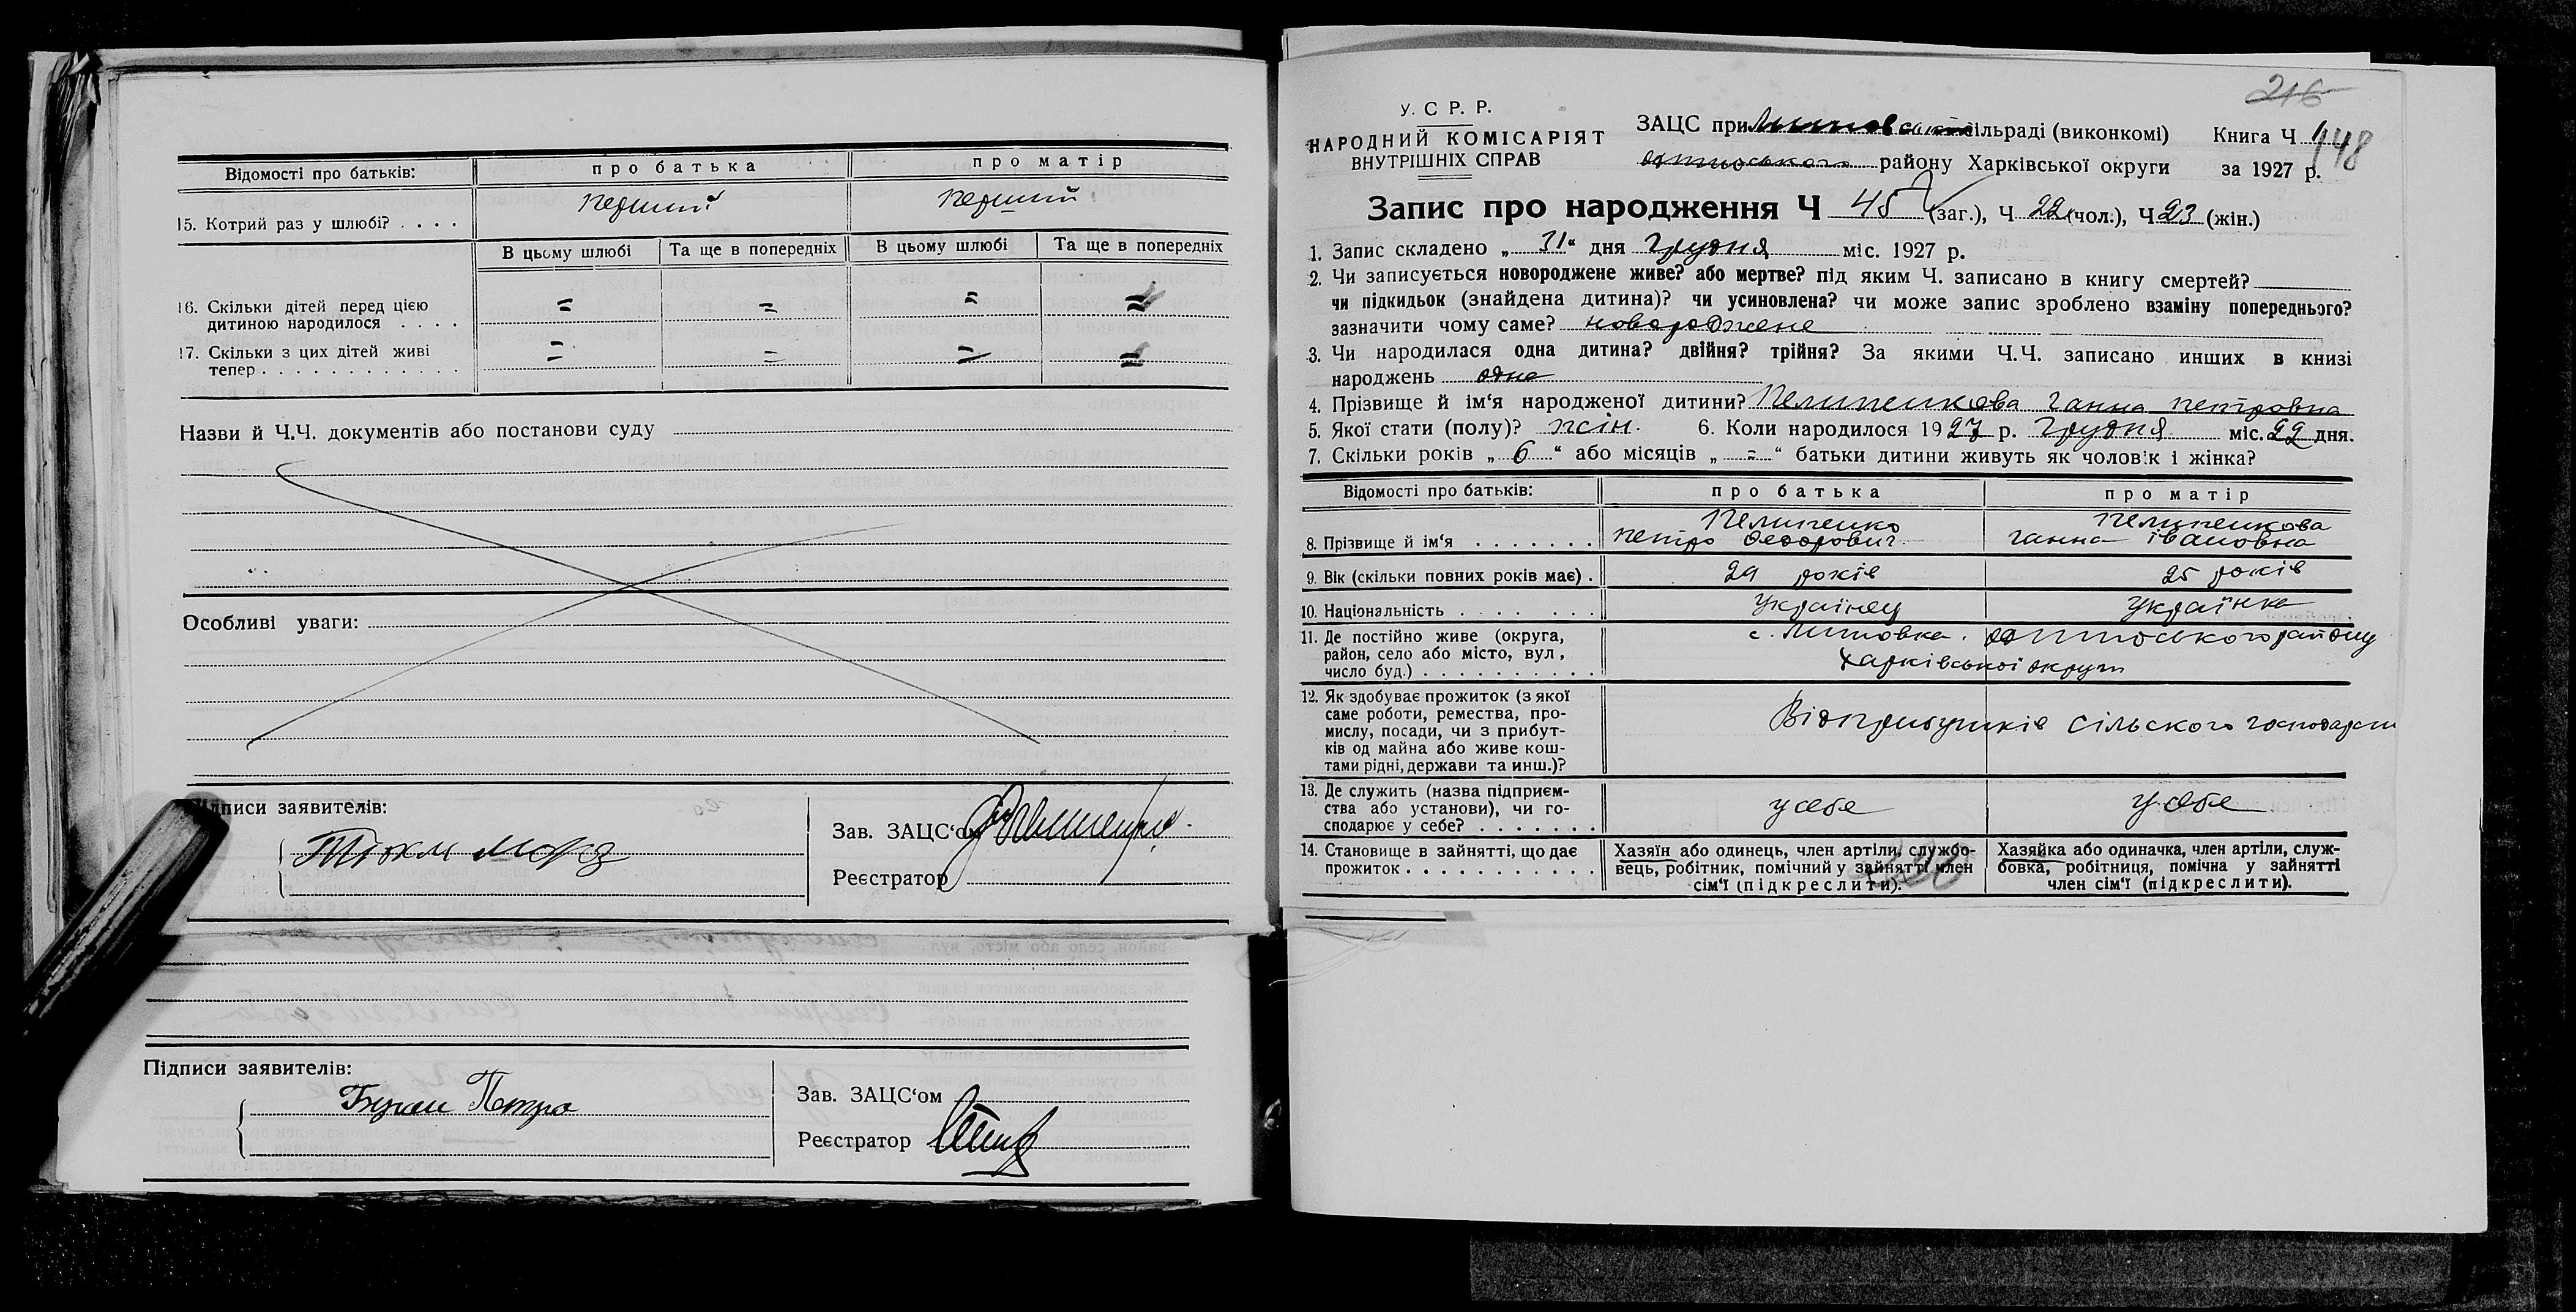 Відомості про батьків: про батька про матір
15. Котрий раз у шлюбі? . . . . перший перший
В цьому шлюбі Та ще в попередніх В цьому шлюбі Та ще в попередніх
16. Скільки дітей перед цією
дитиною народилося . . . . = = = =
17. Скільки з цих дітей живі
тепер . . . . . . . . . . . . = = = =
Назви й Ч.Ч. документів або постанови суду
Особливі уваги:
Підписи заявителів:
Зав. ЗАЦС'ом
Реєстратор
Підписи заявителів:
Петро
Зав. ЗАЦС'ом
Реєстратор
216
У. С Р. Р.
НАРОДНИЙ КОМІСАРІЯТ
ВНУТРІШНІХ СПРАВ
ЗАЦС при сільраді (виконкомі)
району Харківської округи
Книга Ч 148
за 1927 р.
Запис про народження Ч 45 (заг.), Ч 22 (чол.), Ч 23 (жін.)
1. Запис складено „ 31 “ дня Грудня міс. 1927 р.
2. Чи записується новороджене живе? або мертве? під яким Ч. записано в книгу смертей?
чи підкидьок (знайдена дитина)? чи усиновлена? чи може запис зроблено взаміну попереднього?
зазначити чому саме? новороджене
3. Чи народилася одна дитина? двійня? трійня? За якими Ч.Ч. записано инших в книзі
народжень одна
4. Прізвище й ім'я народженої дитини? Пелипенкова Ганна Петровна
5. Якої стати (полу)? жін. 6. Коли народилося 1927 р. Грудня міс. 22 дня.
7. Скільки років „ 6 “ або місяців „ = “ батьки дитини живуть як чоловік і жінка?
Відомості про батьків: про батька про матір
8. Прізвище й ім'я . . . . . . . Пелипенко Петро Федорович Пелипенкова Ганна Івановна
9. Вік (скільки повних років має) . 29 років 25 років
10. Національність . . . . . . . . Українец Українка
11. Де постійно живе (округа,
район, село або місто, вул,
число буд.) . . . . . . . . . . с. Липовка. району
Харківської округи
12. Як здобуває прожиток (з якої
саме роботи, ремества, про-
мислу, посади, чи з прибут-
ків од майна або живе кош-
тами рідні, держави та инш.)?
Відприбутків сільского господарст
13. Де служить (назва підприєм-
ства або установи), чи го-
сподарює у себе? . . . . . . . у себе у себе
14. Становище в зайнятті, що дає
прожиток . . . . . . . . . . .
Хазяїн або одинець, член артіли, службо-
вець, робітник, помічний у зайнятті член
сім'ї (підкреслити).
Хазяйка або одиначка, член артіли, служ-
бовка, робітниця, помічна у зайнятті
член сім'ї (підкреслити).